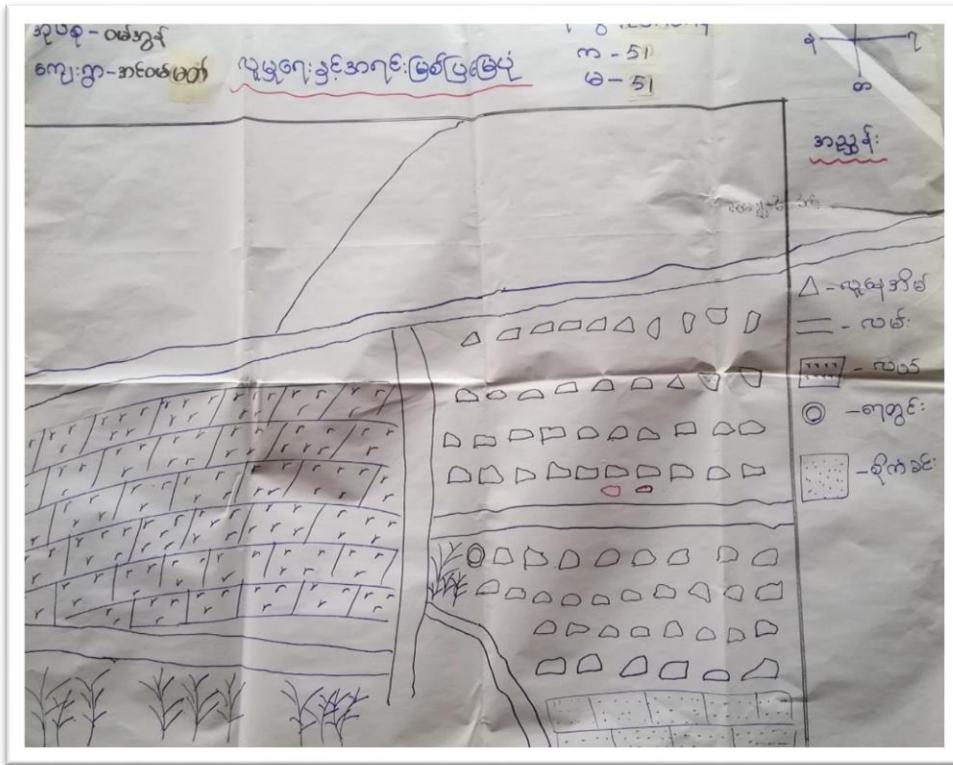 အုပ်စု - ဝမ်အွန်
ကျေးရွာ - အင်ဝမ်မတ်
လူမှုရေးနှင့်အရင်းမြစ်ပြမြေပုံ
က - 51
မ - 51
အညွှန်း
လူနေအိမ်
- လမ်း
- လယ်
- ရေတွင်း
- စိုက်ခင်း